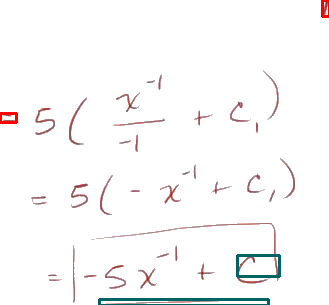 5(x⁻¹/-1 + C₁)
= 5(-x⁻¹ + C₁)
= -5x⁻¹ + C